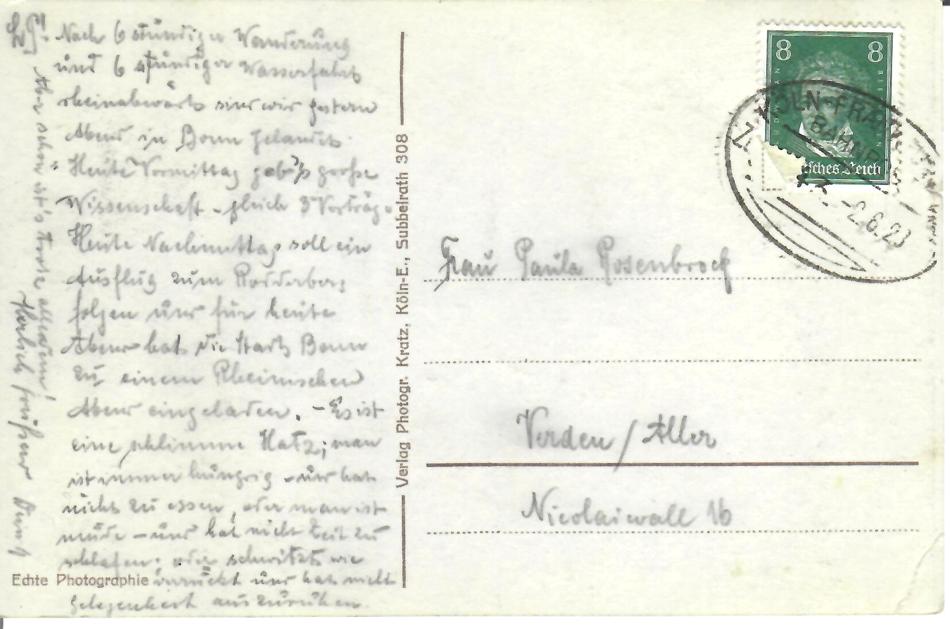 L. P!
Nach 6 stündiger Wanderung
und 6 stündiger Wasserfahrt
rheinabwärts sind wir gestern
Abend in Bonn gelandet.
Heute Vormittag gab's große
Wissenschaft - gleich 3 Vorträge.
Heute Nachmittag soll ein
Ausflug zum Rodderberg
folgen und für heute
Abend hat die Stadt Bonn
zu einem Rheinischen
Abend eingeladen. - Es ist
eine schlimme Hatz; man
ist immer hungrig - und hat
nichts zu essen, oder man ist
müde - und hat nicht Zeit zu
schlafen; oder schwitzt wie
verrückt und hat nicht
Gelegenheit auszuruhen.
Aber schön ist's trotz alledem!
Herlich grüßend
Echte Photographie
Verlag Photogr. Kratz, Köln-E., Subbelrath 308
8 8
Deutsches Reich
KÖLN-FRANKF
BAHNPOST
Z.
-2.6.28
Frau Paula Rosenbrock
Verden / Aller
Nicolaiwall 16